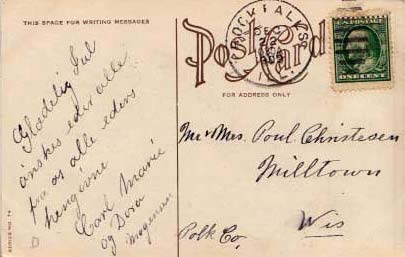 THIS SPACE FOR WRITING MESSAGES
Post Card
FOR ADDRESS ONLY
ONE CENT
Glædelig Jul
önskes eder alle
fra os alle eders
hengivne
Carl Marie
og Dora
Mogensen
Mr & Mrs. Poul Christesen
Milltown
Polk Co. Wis
SERIES NO.